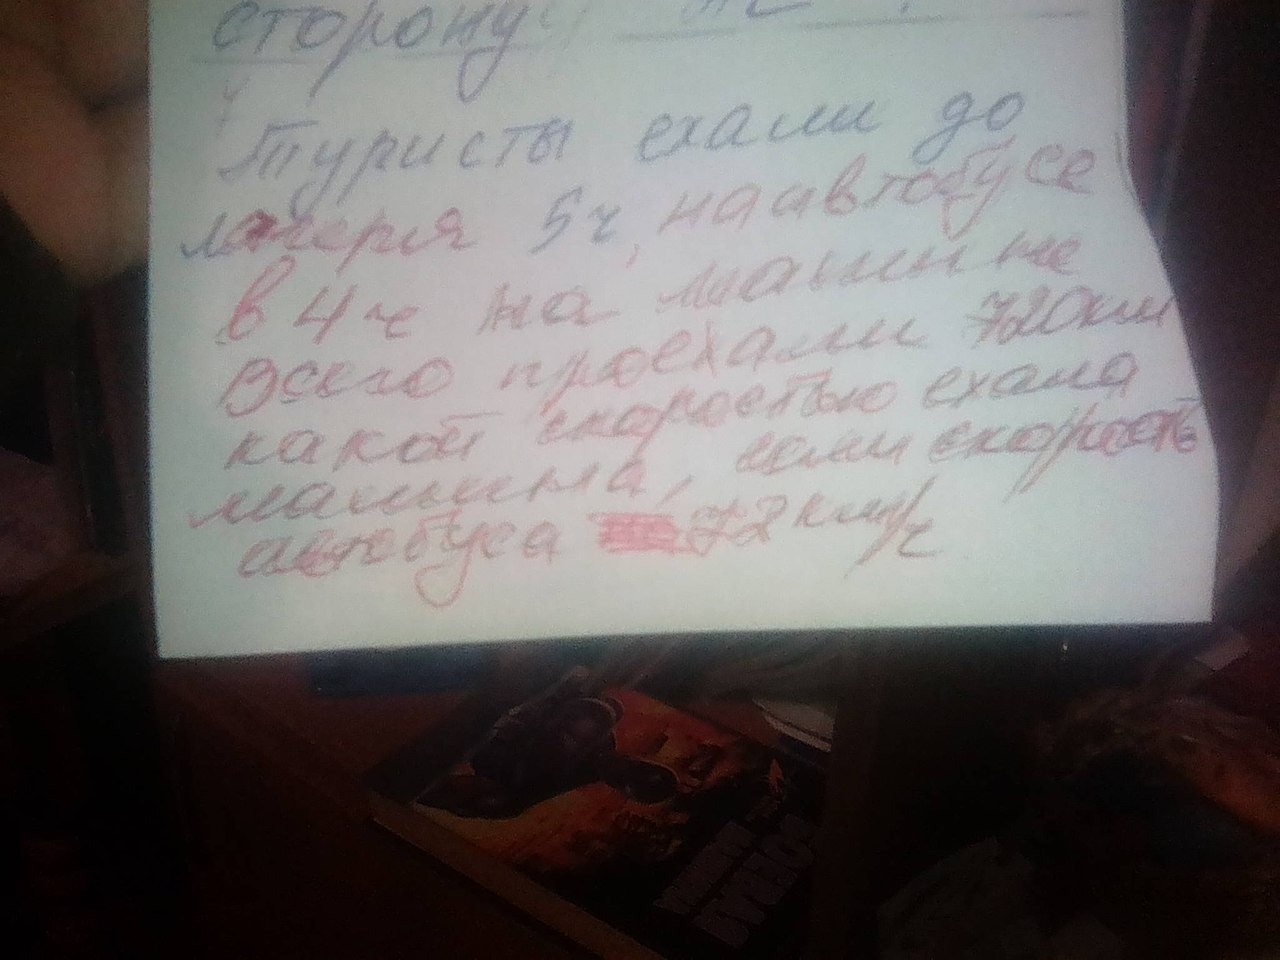 сторону
Туристы ехали до
лагеря 5ч, на автобусе
в 4 ч на машине
всего проехали 720 км
какой скоростью ехала
машина, если скорость
автобуса 72 км/ч